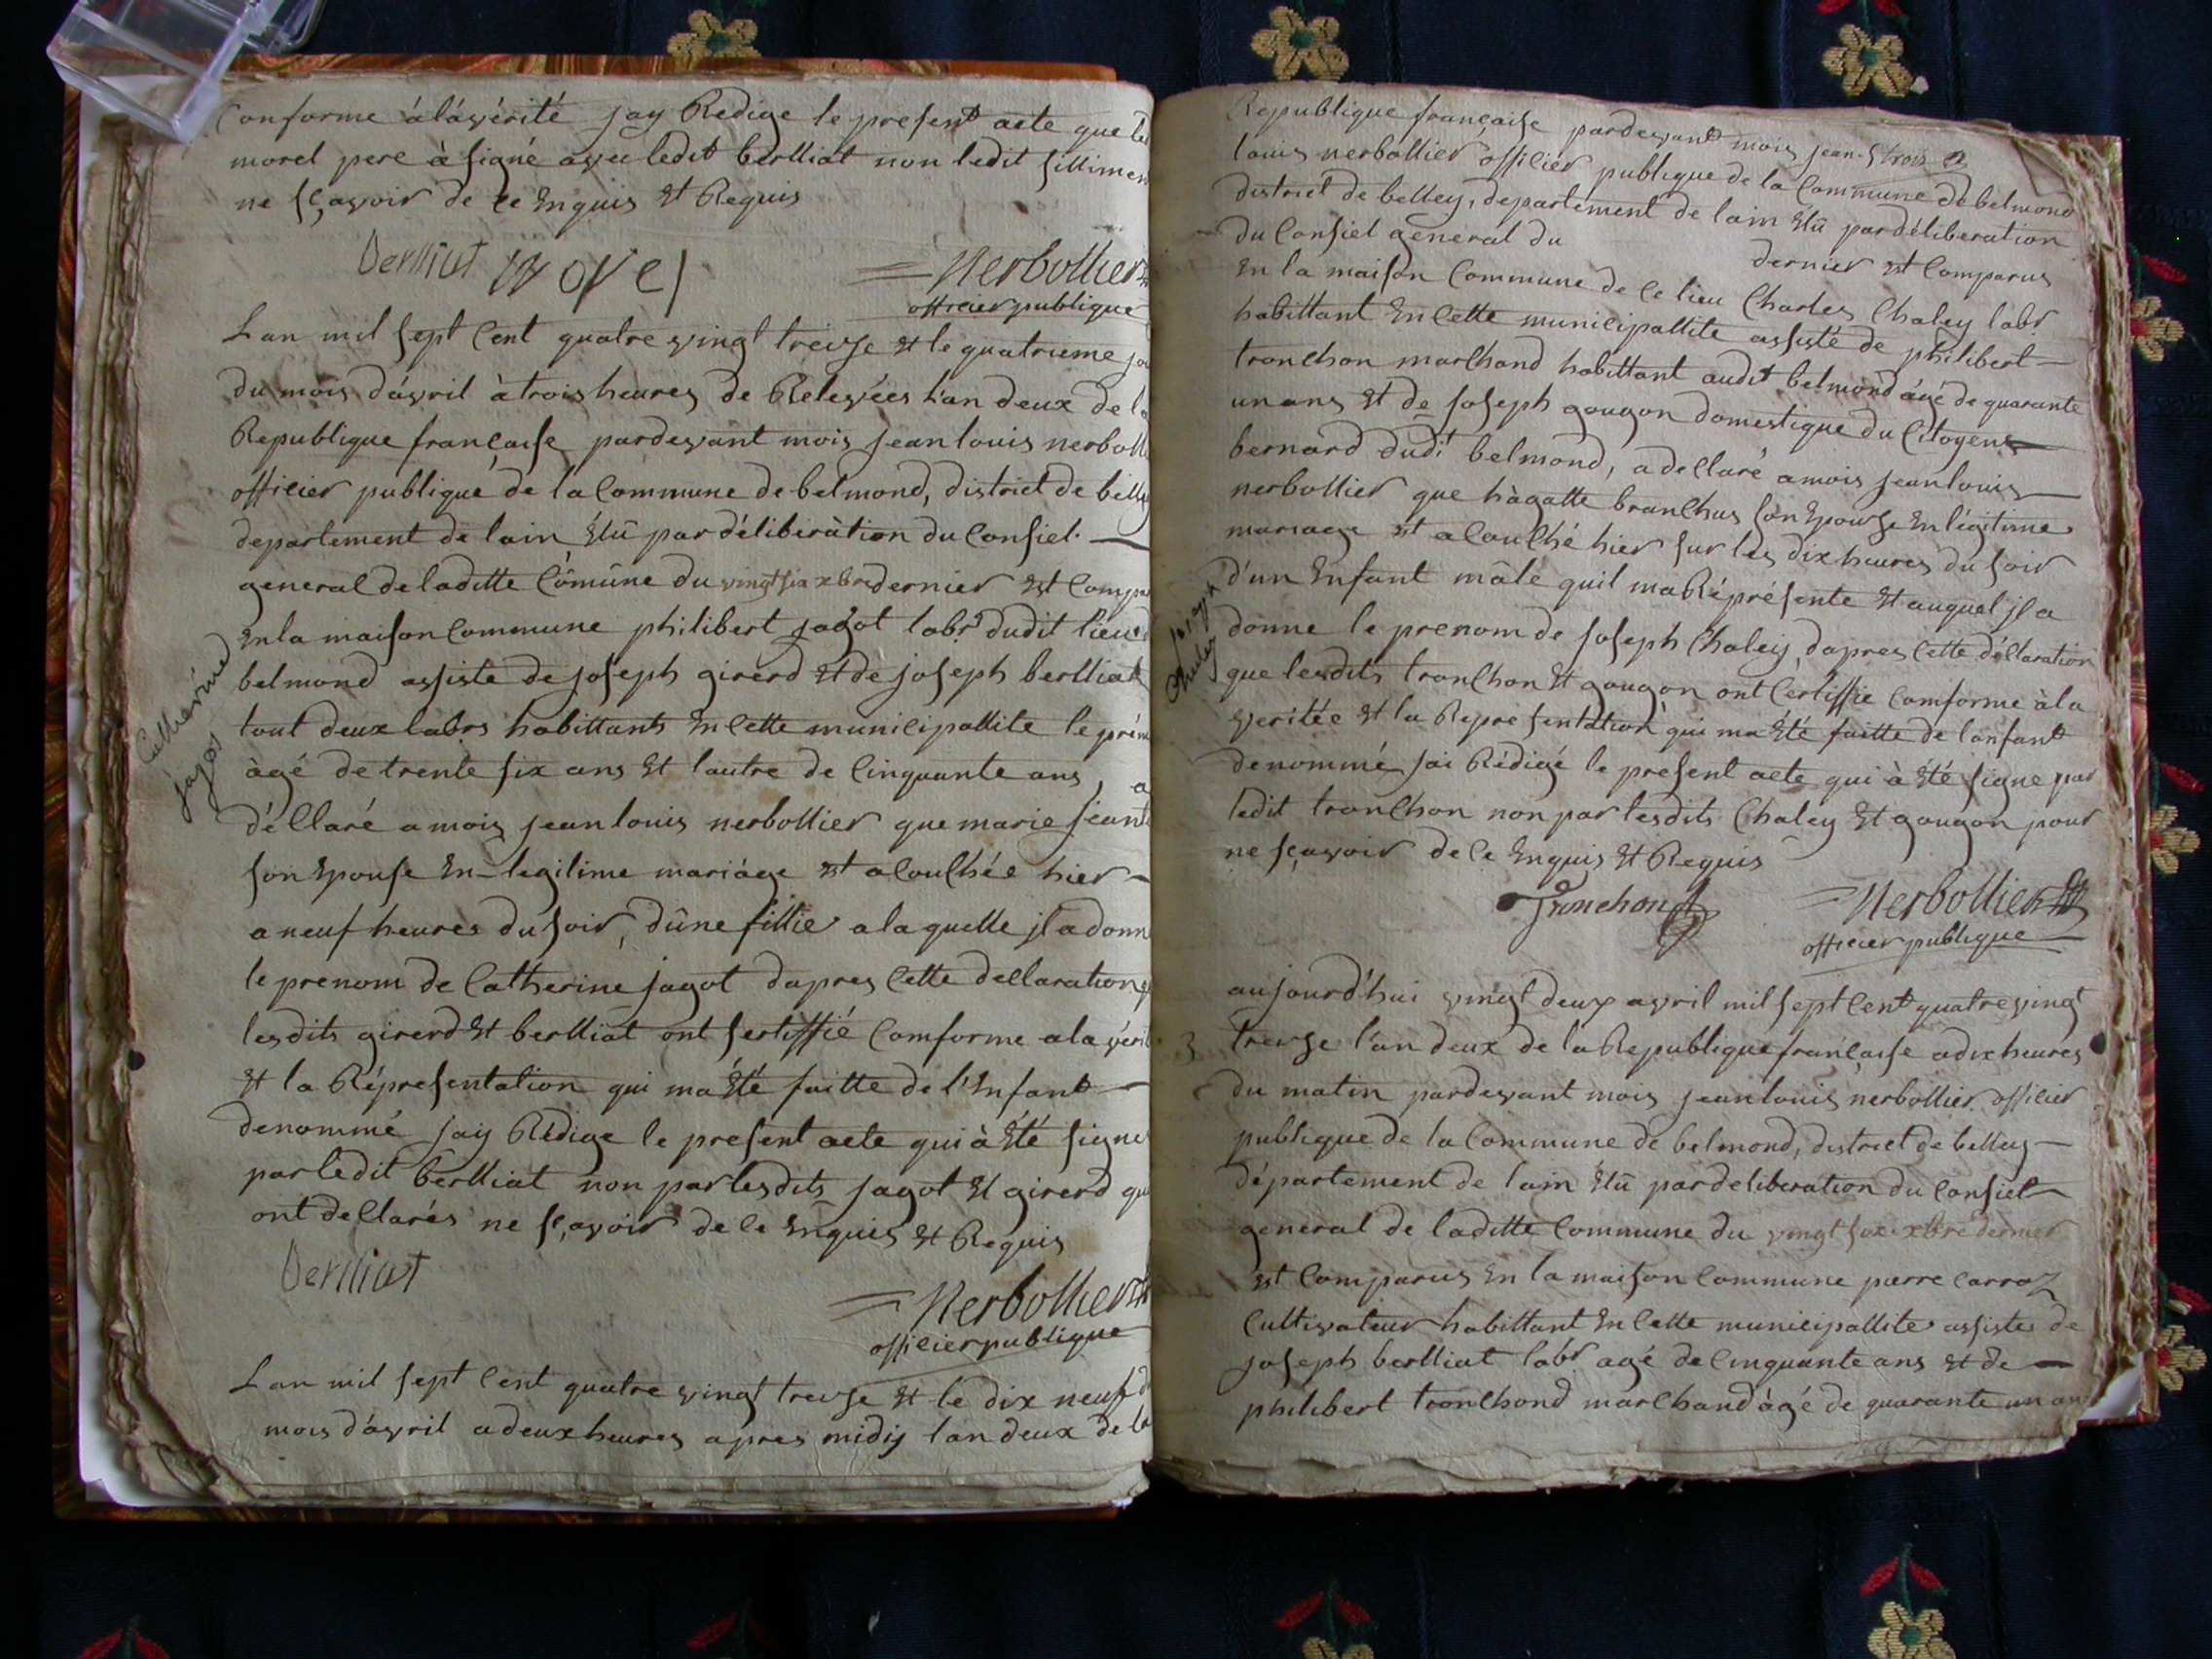 Conforme àlávérité jay Redige le present acte que led
morel pere à signé avec ledit berlliat non ledit fillimen
ne sçavoir de ce Enquis Et Requis
berlliat morel
Nerbollier
officier publique
Lan mil sept Cent quatre vingt treize Et le quatrieme jo
du mois d'ávril à trois heures de Relevées l'an deux de la
Republique francaise pardevant mois jean louis nerboll
officier publique de la Commune de belmond, district de belle
departement de lain Elû par délibération du Consiel
general de laditte Cômûne du vingt six xbre dernier est Compa
En la maison Commune philibert jagot labr dudit lieu d
belmond assiste de joseph girerd Et de joseph berlliat
tout deux labrs habittants En Cette municipallite le prém
àgé de trente six ans Et lautre de Cinquante ans, a
déllaré a mois jean louis nerbollier que marie jeant
son Epouse En legitime mariáge est acouchée hier
a neuf heures du soir, dûne fillie a la quelle jl a donn
le prenom de Catherine jagot dapres Cette dellaration q
lesdits girerd Et berlliat ont sertiffié Comforme a la vérit
Et la Répresentation qui ma Eté faitte de l'Enfant
denommé jay Rédige le present acte qui à Eté signe
par ledit berlliat non par lesdits jagot Et girerd qui
ont dellarés ne sçavoir de ce Enquis Et Requis
berlliat
Nerbollier
officier publique
Lan mil sept Cent quatre vingt treize Et le dix neuf d
mois d'ávril a deux heures apres midij lan deux de la
Catherine
jagot
trois
Republique francaise pardevant mois jean
louis nerbollier officier publique de la Commune de belmond
district de belley, departement de lain Elû par déliberation
du Consiel general du dernier est Comparus
En la maison Commune de Ce lieu Charles Chaley labr
habittant En Cette municipallite assisté de philibert
tronchon marchand habittant audit belmond ágé de quarante
un ans Et de joseph gougon domestique du Citoyens
bernard dudit belmond, a dellaré a mois jean louis
nerbollier que hàgatte branchus son Epouse En légitime
mariage est acouché hier sur les dix heures du soir
d'un Enfant mâle quil ma Réprésente Et auquel jl a
donne le prenom de joseph Chaley, dapres Cette déllaration
que lesdits tronchon Et gougon ont Certiffie Comforme à la
veritée Et la Representation qui ma Eté faitte de lanfant
denommé jai Rédigé le present acte qui à Eté signe par
ledit tronchon non par lesdits Chaley Et gougon pour
ne sçavoir de Ce Enquis Et Requis
Tronchon
Nerbollier
officier publique
joseph
Chaley
aujourd'hui vingt deux avril mil sept Cent quatre vingt
treize l'an deux de la Republique francaise a dix heures
du matin pardevant mois jean louis nerbollier officier
publique de la Commune de belmond, district de belley
département de lain Elû par deliberation du Consiel
general de laditte Commune du vingt six xbre dernier
est Comparus En la maison Commune pierre Carraz
Cultivateur habittant En Cette municipallite assiste de
joseph berlliat labr agé de Cinquante ans Et de
philibert tronchond marchand àgé de quarante un an